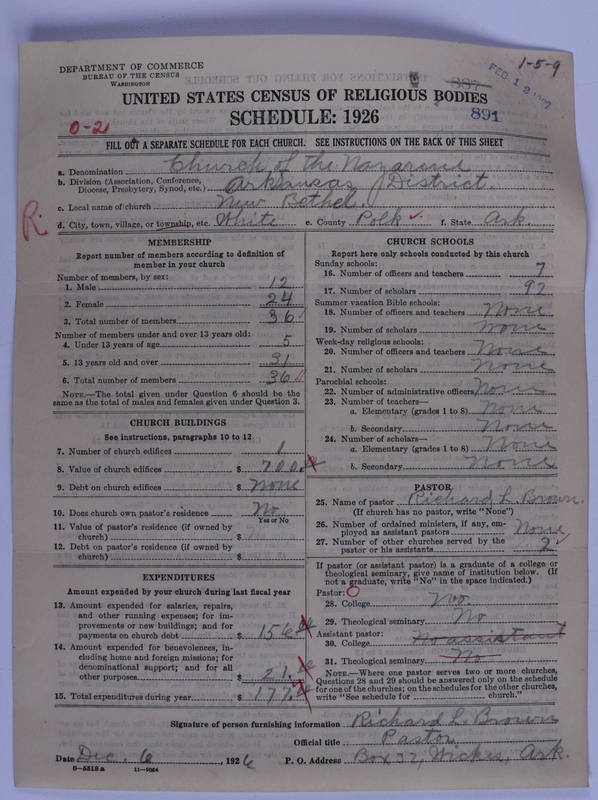 DEPARTMENT OF COMMERCE
BUREAU OF THE CENSUS
WASHINGTON
1-5-9
887
FEB 12 1927
891
UNITED STATES CENSUS OF RELIGIOUS BODIES
SCHEDULE: 1926
0-21
FILL OUT A SEPARATE SCHEDULE FOR EACH CHURCH. SEE INSTRUCTIONS ON THE BACK OF THIS SHEET
a. Denomination Church of the Nazarene
b. Division (Association, Conference, Diocese, Presbytery, Synod, etc.) Arkansas District.
c. Local name of church New Bethel.
d. City, town, village, or township, etc. White e. County Polk f. State Ark.
R.
MEMBERSHIP
Report number of members according to definition of
member in your church
Number of members, by sex:
1. Male 12
2. Female 24
3. Total number of members 36
Number of members under and over 13 years old:
4. Under 13 years of age 5
5. 13 years old and over 31
6. Total number of members 36
NOTE.—The total given under Question 6 should be the
same as the total of males and females given under Question 3.
CHURCH BUILDINGS
See instructions, paragraphs 10 to 12
7. Number of church edifices 1
8. Value of church edifices $ 700.00
9. Debt on church edifices $ None
10. Does church own pastor's residence No
Yes or No
11. Value of pastor's residence (if owned by
church) $
12. Debt on pastor's residence (if owned by
church) $
EXPENDITURES
Amount expended by your church during last fiscal year
13. Amount expended for salaries, repairs,
and other running expenses; for im-
provements or new buildings; and for
payments on church debt $ 156.
14. Amount expended for benevolences, in-
cluding home and foreign missions; for
denominational support; and for all
other purposes $ 21.
15. Total expenditures during year $ 177.
CHURCH SCHOOLS
Report here only schools conducted by this church
Sunday schools:
16. Number of officers and teachers 7
17. Number of scholars 92
Summer vacation Bible schools:
18. Number of officers and teachers None
19. Number of scholars None
Week-day religious schools:
20. Number of officers and teachers None
21. Number of scholars None
Parochial schools:
22. Number of administrative officers None
23. Number of teachers—
a. Elementary (grades 1 to 8) None
b. Secondary None
24. Number of scholars—
a. Elementary (grades 1 to 8) None
b. Secondary None
PASTOR
25. Name of pastor Richard L. Brown.
(If church has no pastor, write "None")
26. Number of ordained ministers, if any, em-
ployed as assistant pastors None
27. Number of other churches served by the
pastor or his assistants 2
If pastor (or assistant pastor) is a graduate of a college or
theological seminary, give name of institution below. (If
not a graduate, write "No" in the space indicated.)
Pastor: O
28. College No.
29. Theological seminary No
Assistant pastor:
30. College No assistant
31. Theological seminary No
NOTE.—Where one pastor serves two or more churches,
Questions 28 and 29 should be answered only on the schedule
for one of the churches; on the schedules for the other churches,
write "See schedule for church."
Signature of person furnishing information Richard L. Brown
Official title Pastor
Date Dec. 6, 1926 P. O. Address Box 32, Wickes, Ark.
8—5518a 11—9054